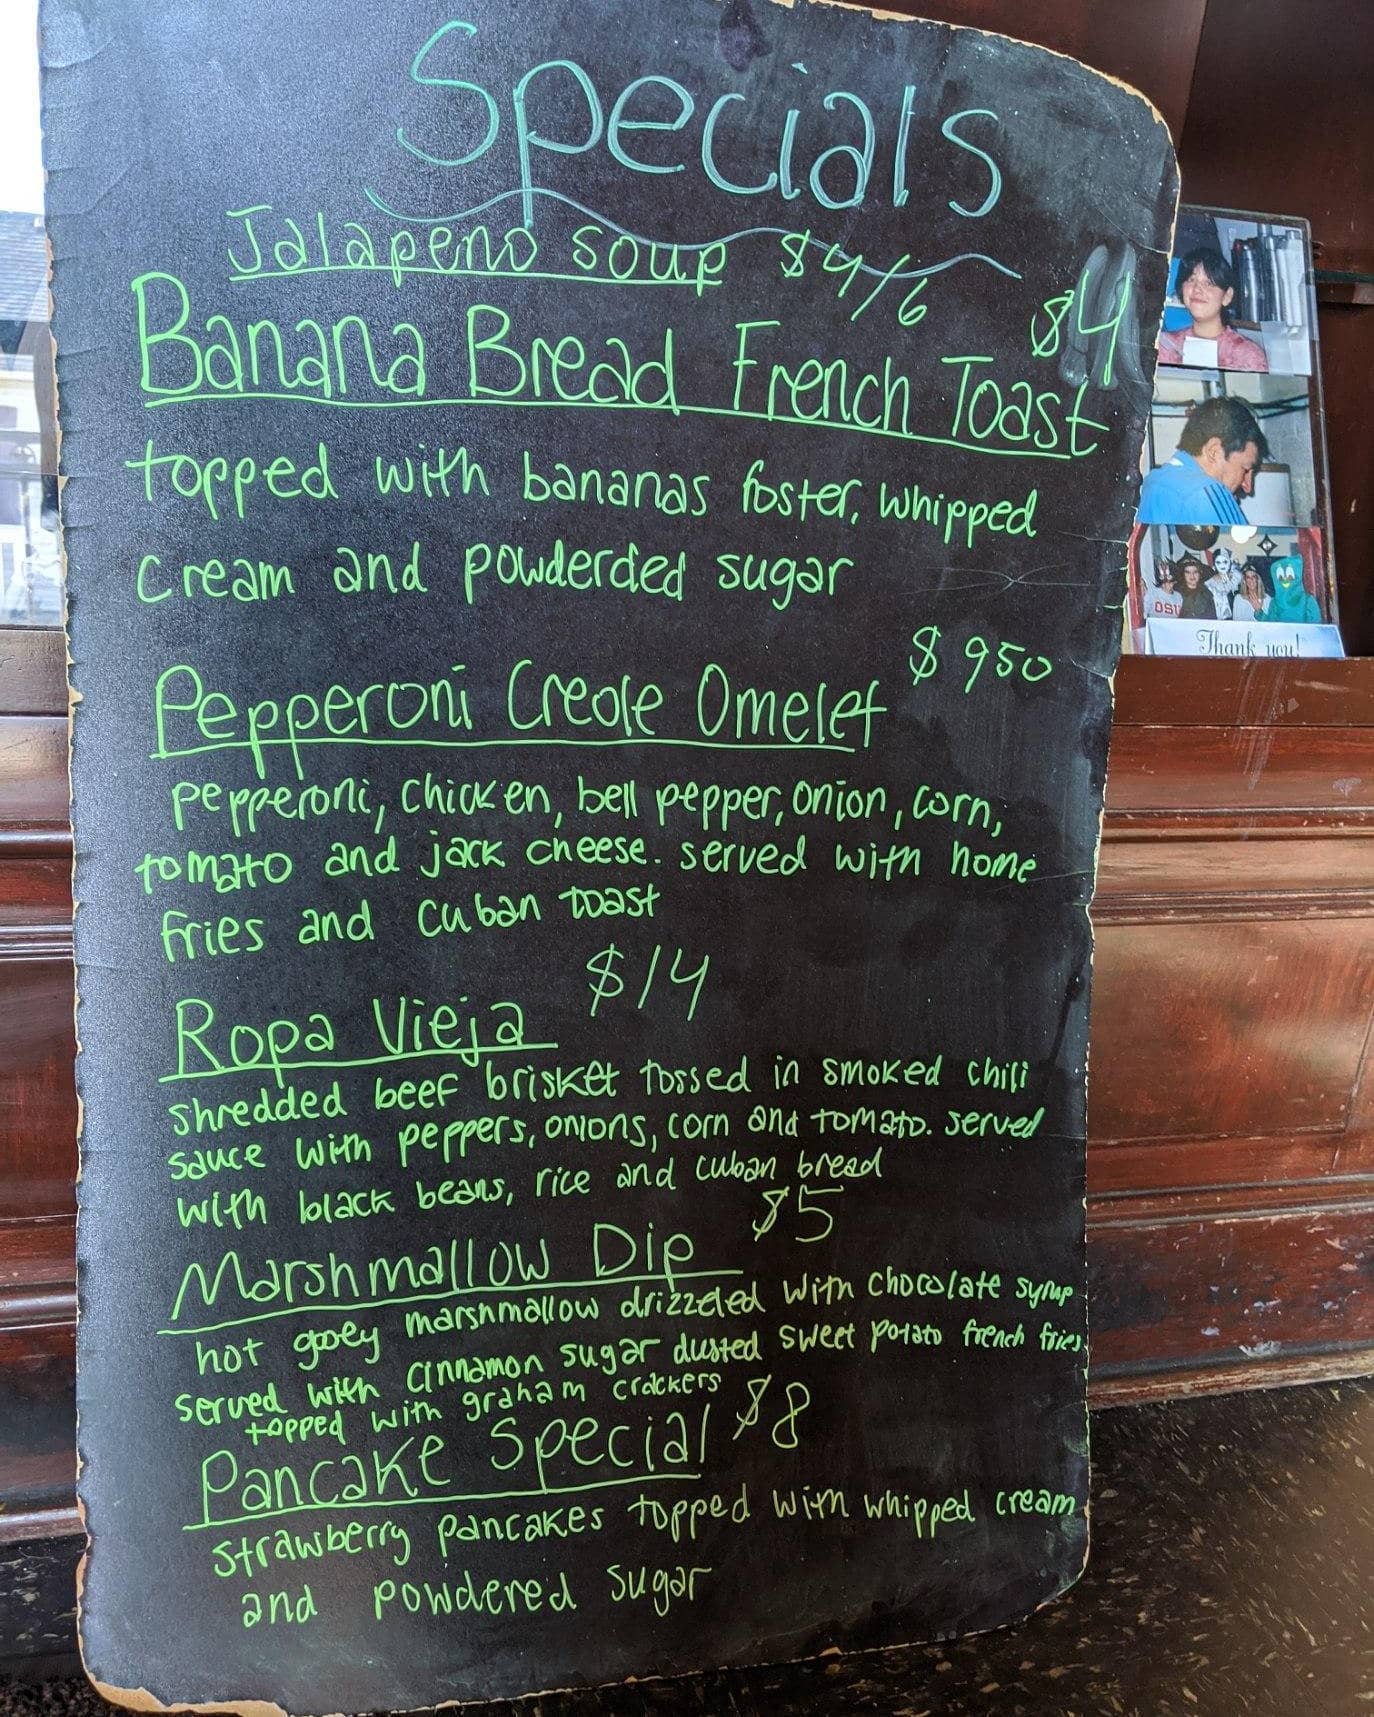 Specials
Jalapeno soup $4/6
$4
Banana Bread French Toast
topped with bananas foster, whipped
cream and powderded sugar
$950
Pepperoni Creole Omelet
pepperoni, chicken, bell pepper, onion, corn,
tomato and jack cheese. served with home
fries and cuban toast
$14
Ropa Vieja
shredded beef brisket tossed in smoked chili
sauce with peppers, onions, corn and tomato. served
with black beans, rice and cuban bread
$5
Marshmallow Dip
hot gooey marshmallow drizzeled with chocolate syrup
served with cinnamon sugar dusted sweet potato french fries
topped with graham crackers
Pancake Special $8
strawberry pancakes topped with whipped cream
and powdered sugar
OSU
Thank you!